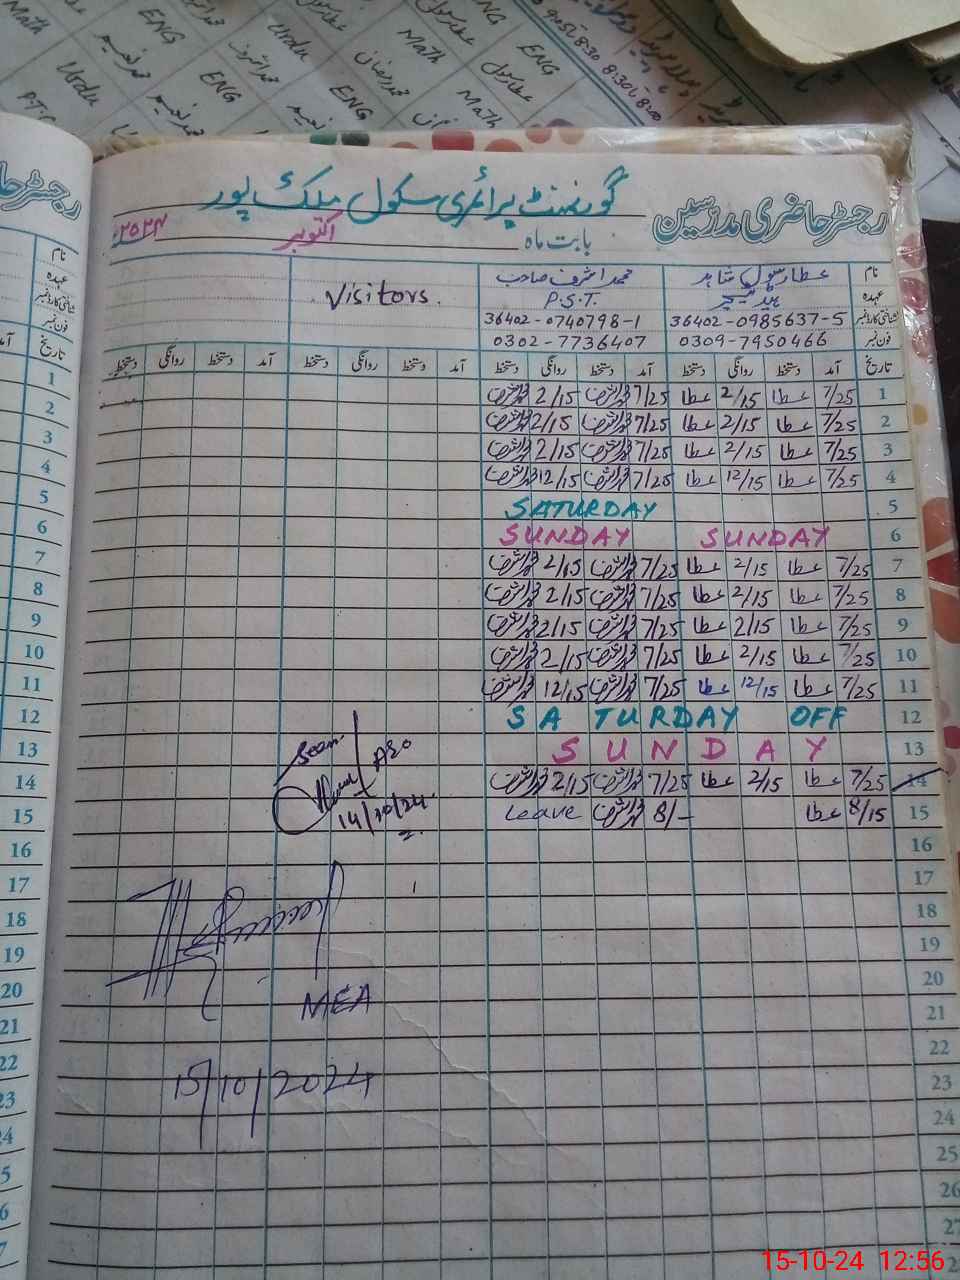 گورنمنٹ پرائمری سکول ملک پور
رجسٹر حاضری مدرسین
بابت ماہ اکتوبر ۲۰۲۴
نام عطا رسول شاہد محمد اشرف صاحب Visitors.
عہدہ ہیڈ ٹیچر P.S.T.
شناختی کارڈ نمبر 36402-0985637-5 36402-0740798-1
فون نمبر 0309-7950466 0302-7736407
تاریخ آمد دستخط روانگی دستخط آمد دستخط روانگی دستخط آمد دستخط روانگی دستخط آمد دستخط روانگی دستخط
1 7/25 عطا 2/15 عطا 7/25 محمد اشرف 2/15 محمد اشرف
2 7/25 عطا 2/15 عطا 7/25 محمد اشرف 2/15 محمد اشرف
3 7/25 عطا 2/15 عطا 7/25 محمد اشرف 2/15 محمد اشرف
4 7/25 عطا 12/15 عطا 7/25 محمد اشرف 12/15 محمد اشرف
5 SATURDAY
6 SUNDAY SUNDAY
7 7/25 عطا 2/15 عطا 7/25 محمد اشرف 2/15 محمد اشرف
8 7/25 عطا 2/15 عطا 7/25 محمد اشرف 2/15 محمد اشرف
9 7/25 عطا 2/15 عطا 7/25 محمد اشرف 2/15 محمد اشرف
10 7/25 عطا 2/15 عطا 7/25 محمد اشرف 2/15 محمد اشرف
11 7/25 عطا 12/15 عطا 7/25 محمد اشرف 12/15 محمد اشرف
12 SATURDAY OFF
13 SUNDAY
14 7/25 عطا 2/15 عطا 7/25 محمد اشرف 2/15 محمد اشرف
15 8/15 عطا 8/- محمد اشرف Leave
Seen
AEO
14/10/24
16
17
18
19
20
MEA
21
22
23
15/10/2024
24
25
26
27
15-10-24 12:56